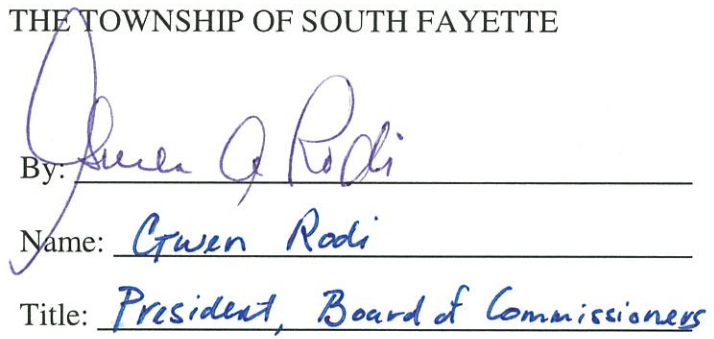 THE TOWNSHIP OF SOUTH FAYETTE
By: Gwen A Rodi
Name: Gwen Rodi
Title: President, Board of Commissioners